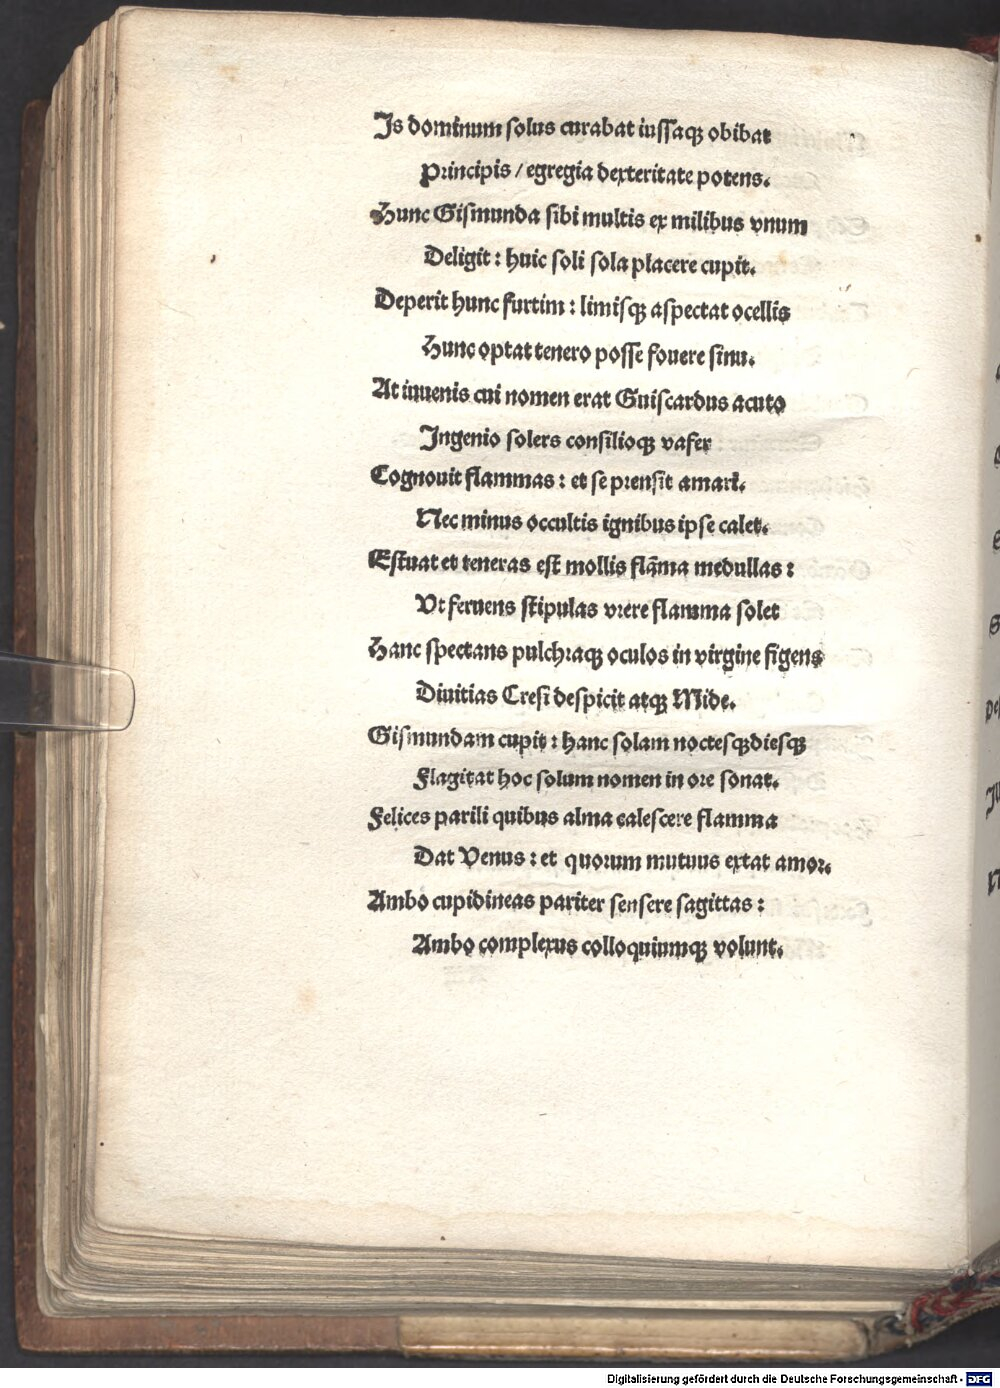 Is dominum solus curabat iussaqꝫ obibat
Principis / egregia dexteritate potens.
Hunc Gismunda sibi multis ex milibus vnum
Deligit : huic soli sola placere cupit.
Deperit hunc furtim : limisqꝫ aspectat ocellis
Hunc optat tenero posse fouere sinu.
At iuuenis cui nomen erat Guiscardus acuto
Ingenio solers consilioqꝫ vafer
Cognouit flammas : et se prensit amari.
Nec minus occultis ignibus ipse calet.
Estuat et teneras est mollis flāma medullas :
Vt feruens stipulas vrere flamma solet
Hanc spectans pulchraqꝫ oculos in virgine figens
Diuitias Cresi despicit atqꝫ Mide.
Gismundam cupit : hanc solam noctesqꝫdiesqꝫ
Flagitat hoc solum nomen in ore sonat.
Felices parili quibus alma calescere flamma
Dat Venus : et quorum mutuus extat amor.
Ambo cupidineas pariter sensere sagittas :
Ambo complexus colloquiumqꝫ volunt.
Digitalisierung gefördert durch die Deutsche Forschungsgemeinschaft - DFG